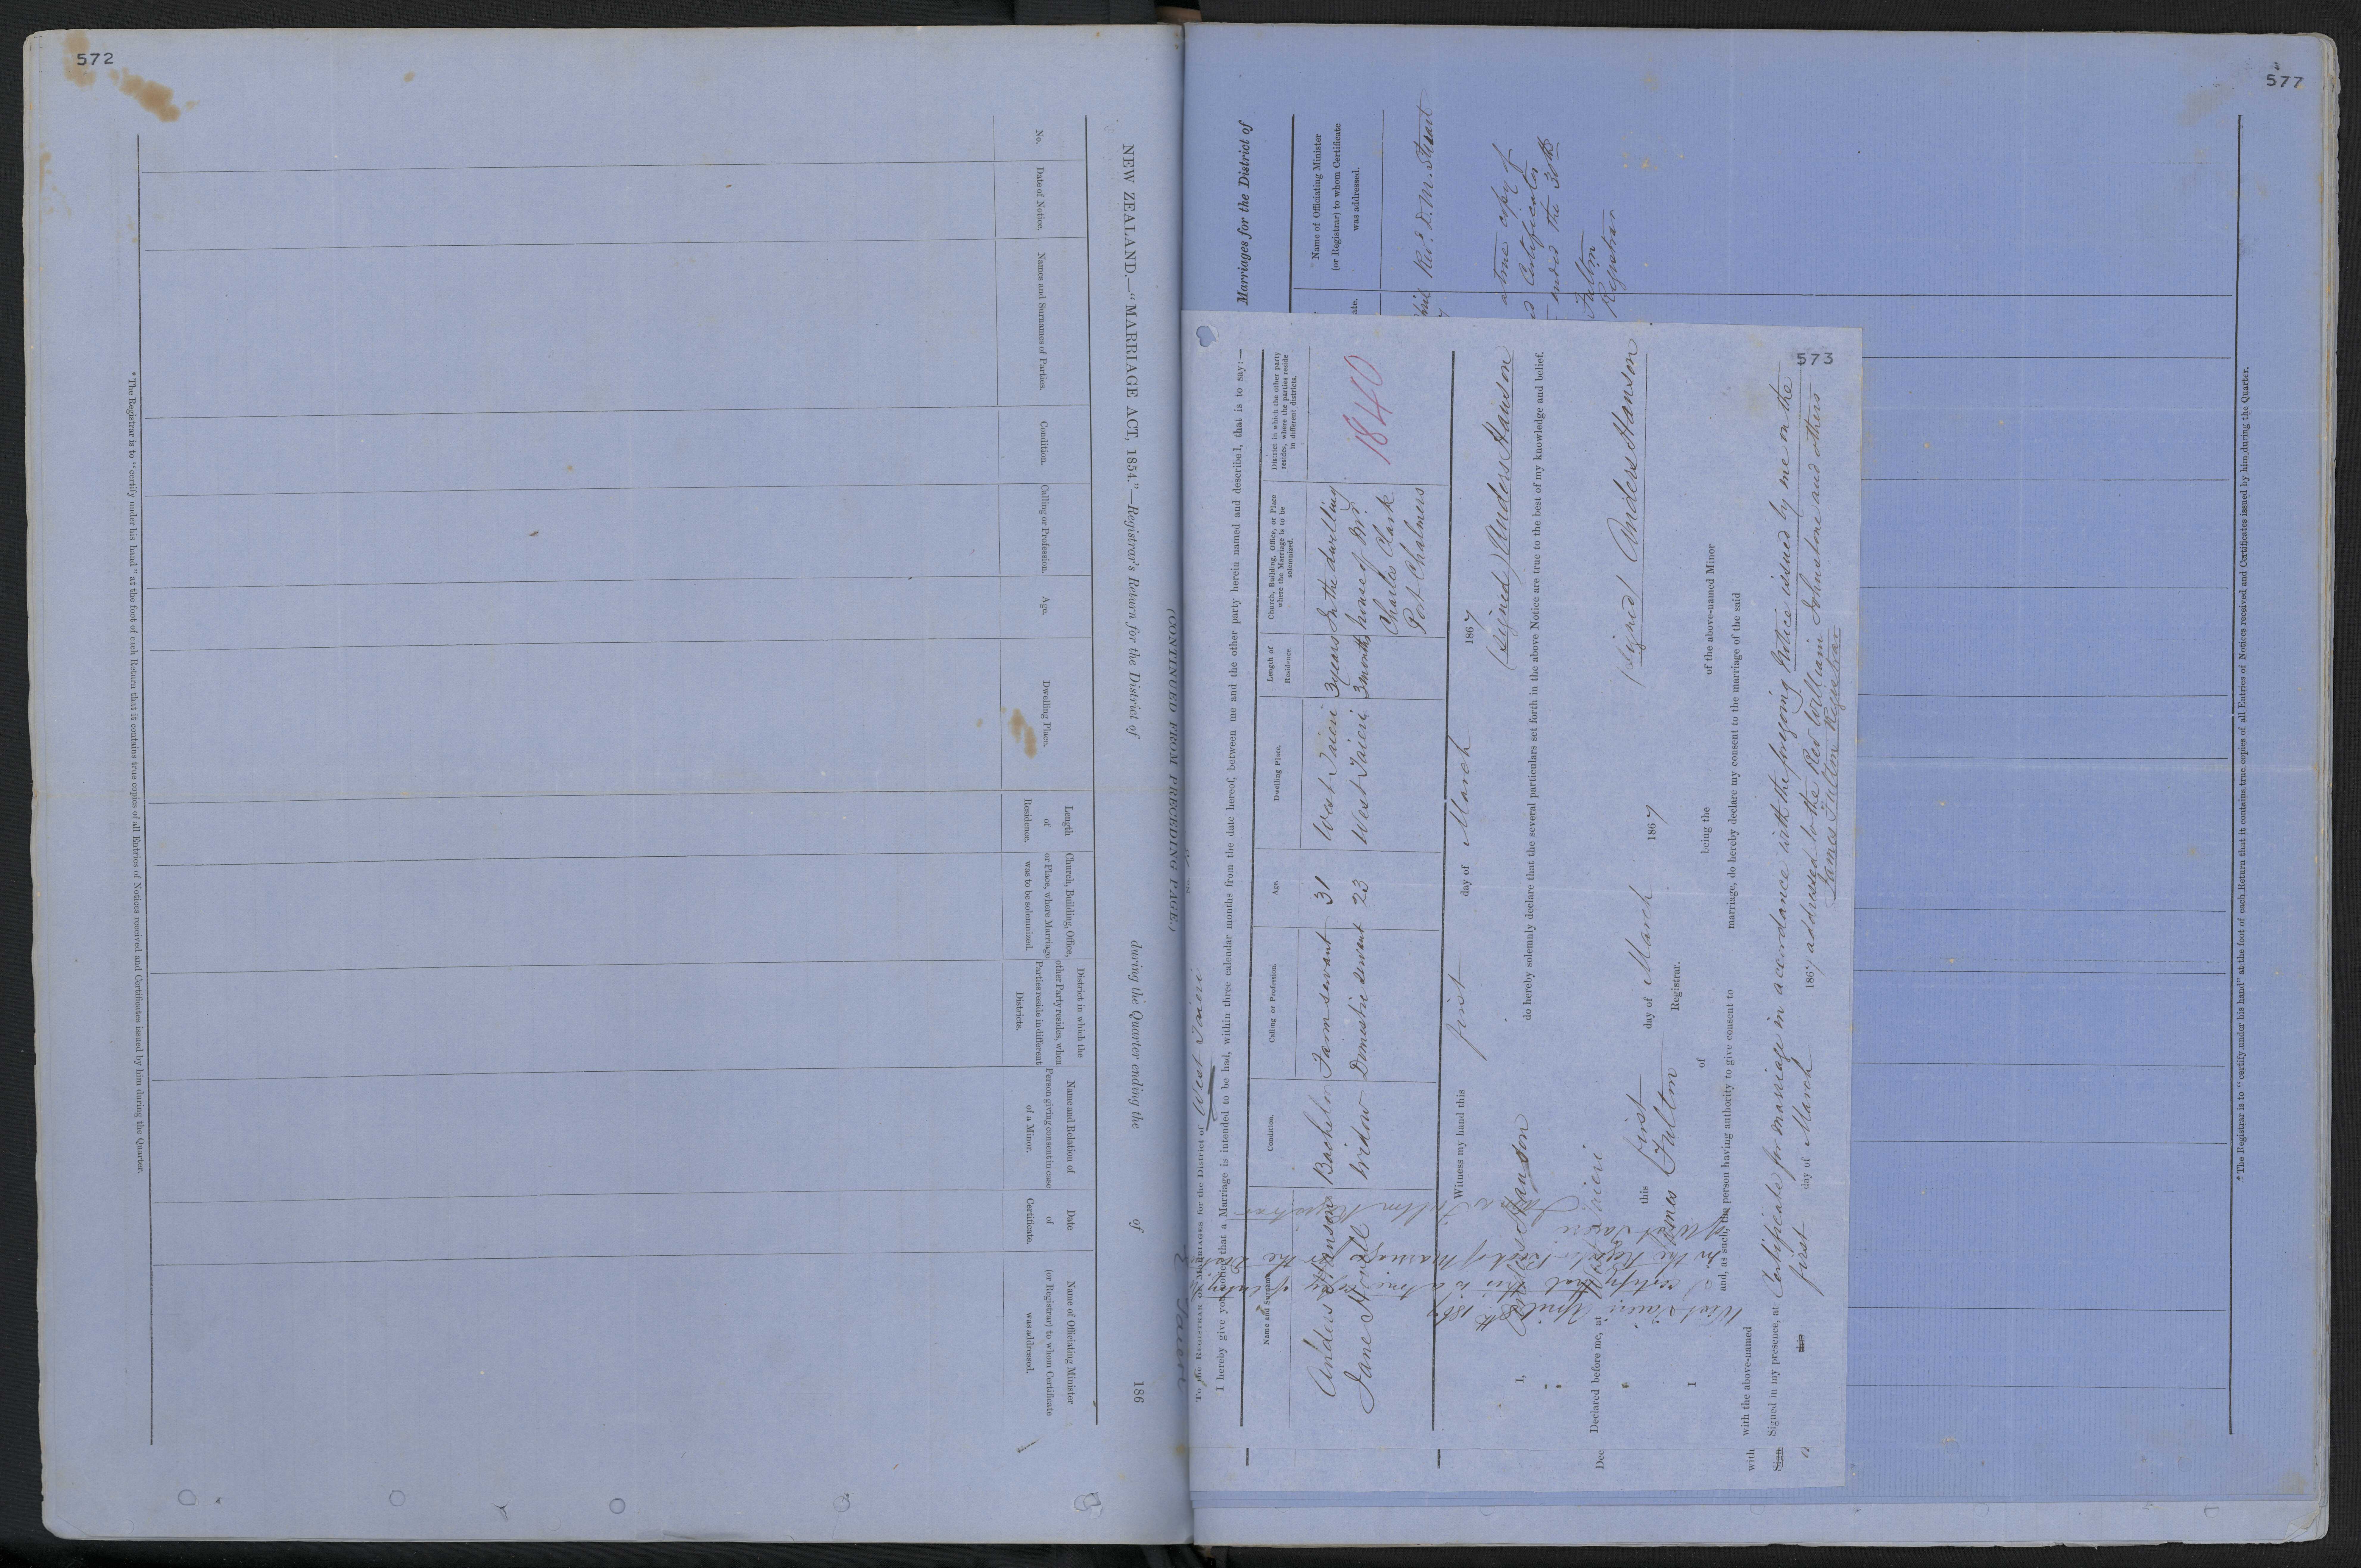 572
NEW ZEALAND.—"MARRIAGE ACT, 1854."—Registrar's Return for the District of during the Quarter ending the of 186
(CONTINUED FROM PRECEDING PAGE.)
No.
Date of Notice.
Names and Surnames of Parties.
Condition.
Calling or Profession.
Age.
Dwelling Place.
Length of Residence.
Church, Building, Office, or Place, where Marriage was to be solemnized.
District in which the other Party resides, when Parties reside in different Districts.
Name and Relation of Person giving consent in case of a Minor.
Date of Certificate.
Name of Officiating Minister (or Registrar) to whom Certificate was addressed.
* The Registrar is to "certify under his hand" at the foot of each Return that it contains true copies of all Entries of Notices received and Certificates issued by him during the Quarter.
577
Marriages for the District of
Name of Officiating Minister
(or Registrar) to whom Certificate
was addressed.
Revd. D. M. Stuart
a true copy of
Certificates
ended the 30th
Fulton
Registrar
*The Registrar is to "certify under his hand" at the foot of each Return that it contains true copies of all Entries of Notices received and Certificates issued by him during the Quarter.
573
To the REGISTRAR OF MARRIAGES for the District of West Taieri
I hereby give you notice that a Marriage is intended to be had, within three calendar months from the date hereof, between me and the other party herein named and described, that is to say:—
Name and Surname.
Condition.
Calling or Profession.
Age.
Dwelling Place.
Length of Residence.
Church, Building, Office, or Place where the Marriage is to be solemnized.
District in which the other party resides, where the parties reside in different districts.
Anders Hanson Bachelor Farm servant 31 West Taieri 3 years In the dwelling
Jane Howell Widow Domestic servant 23 West Taieri 3 months house of Mr.
Charles Clark
Port Chalmers
1840
Witness my hand this first day of March 1867
(signed) Anders Hanson
I, Anders Hanson do hereby solemnly declare that the several particulars set forth in the above Notice are true to the best of my knowledge and belief.
(signed) Anders Hanson
Declared before me, at West Taieri this first day of March 1867
James Fulton Registrar.
I of being the of the above-named Minor
and, as such, the person having authority to give consent to marriage, do hereby declare my consent to the marriage of the said
with the above-named
Signed in my presence, at Certificate for marriage in accordance with the foregoing Notice issued by me on the
this first day of March 1867 addressed to the Rev William Johnstone and others
James Fulton Registrar
West Taieri April 8th 1867
I certify that this is a true copy of entry
in the Register Book of Marriages for the District
of West Taieri
James Fulton Registrar